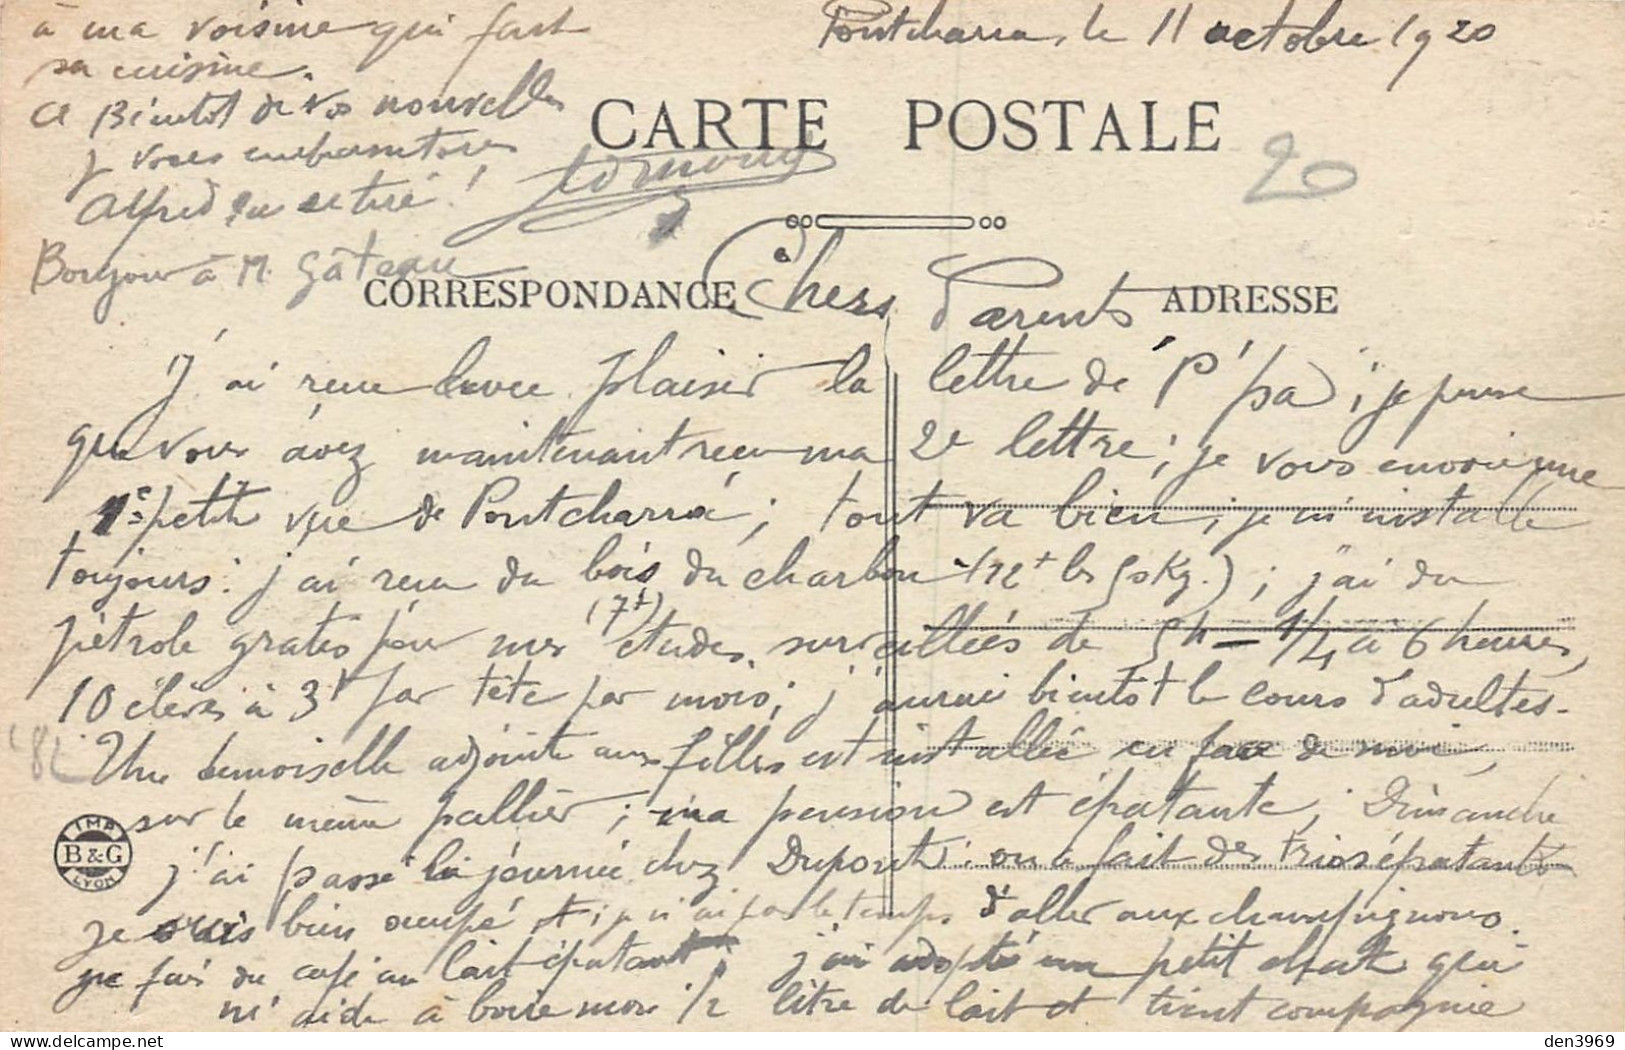 Pontcharra, le 11 octobre 1920
CARTE POSTALE
20
CORRESPONDANCE
ADRESSE
Chers Parents
J'ai reçu avec plaisir la lettre de P'pa ; je pense
que vous avez maintenant reçu ma 2e lettre ; je vous envoie une
1e petite vue de Pontcharra ; tout va bien ; je m'installe
toujours : j'ai reçu du bois du charbon (12f les 50 kg.) ; j'ai du
pétrole gratis pour mes (7f) études surveillées de 5h 1/4 à 6 heures,
10 élèves à 3f par tête par mois ; j'aurai bientôt le cours d'adultes.
Une demoiselle adjointe aux filles est installée en face de moi,
sur le même pallier ; ma pension est épatante ; Dimanche
j'ai passé la journée chez Dupont : on a fait des trios épatants
je suis bien occupé et je n'ai pas le temps d'aller aux champignons.
je fais du café au lait épatant ; j'ai adopté un petit chat qui
m'aide à boire mon 1/2 litre de lait et tient compagnie
à ma voisine qui fait
sa cuisine.
A Bientôt de vos nouvelles
je vous embrasse tous
Alfred
Bonjour à M. Gâteau
IMP B & G LYON
den3969